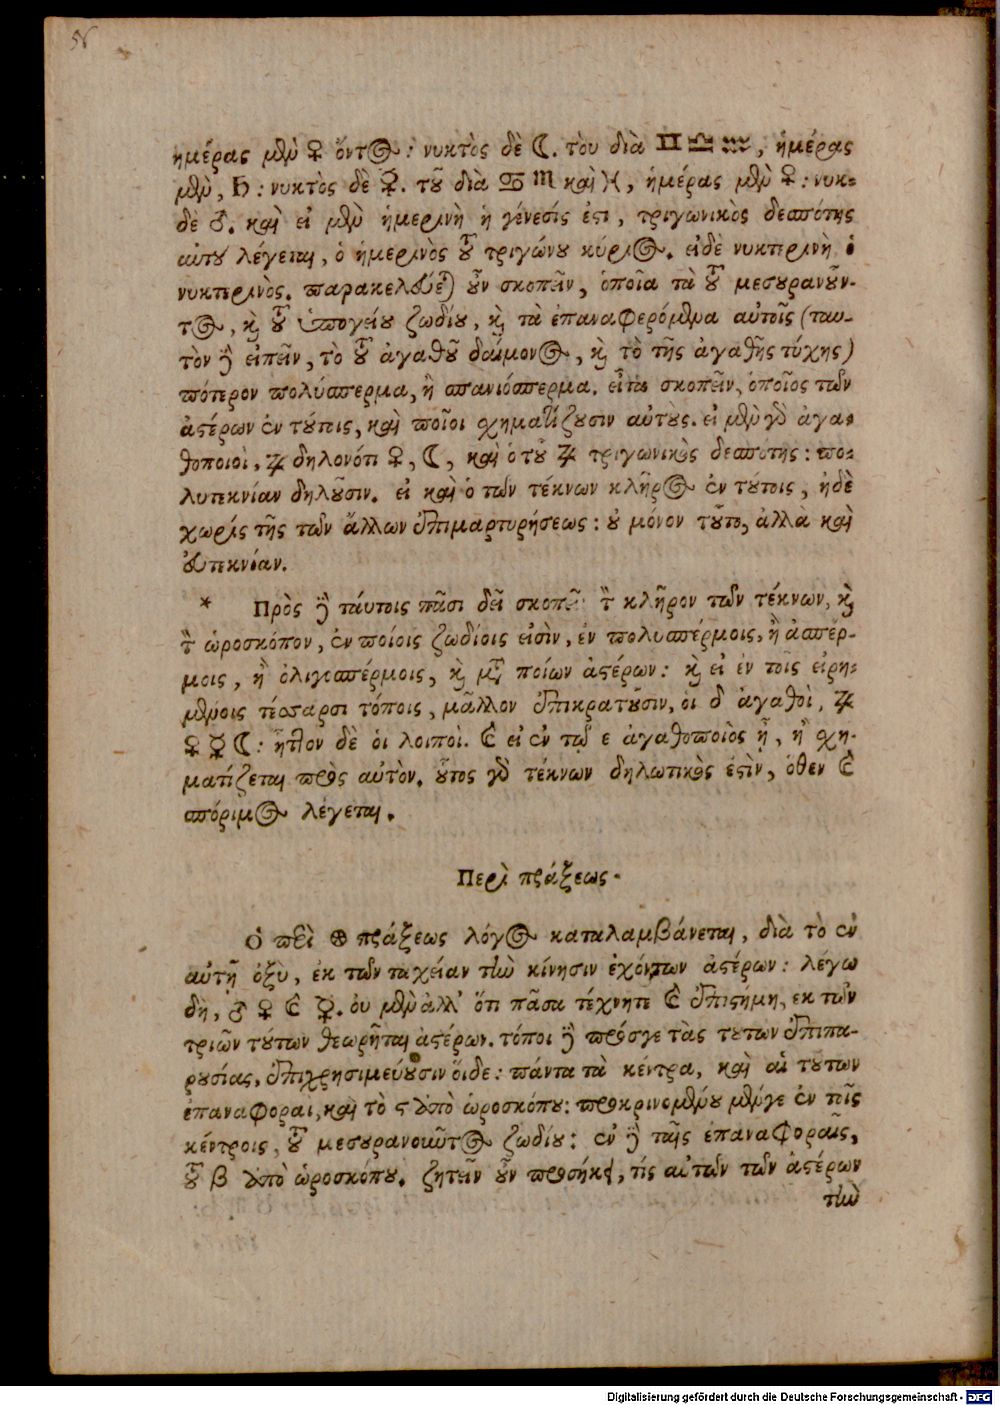 58
ημέρας μὲν ♀ ὄντος: νυκτὸς δὲ ☾. τοῦ διὰ ♊ ♎ ♒, ἡμέρας
μὲν, ♄: νυκτὸς δὲ ☿. τοῦ διὰ ♋ ♏ καὶ ♓, ἡμέρας μὲν ♀: νυκ-
δὲ ♂. καὶ εἰ μὲν ἡμερινὴ ἡ γένεσίς ἐστι, τριγωνικὸς δεσπότης
αὐτοῦ λέγεται, ὁ ἡμερινὸς τοῦ τριγώνου κύριος. εἰδὲ νυκτερινὴ ὁ
νυκτερινὸς. παρακελεύε) οὖν σκοπεῖν, ὁποῖα τὰ τοῦ μεσουρανοῦν-
τος, καὶ τοῦ ὑπογείου ζωδίου, καὶ τὰ ἐπαναφερόμενα αὐτοῖς (ταυ-
τὸν δὲ εἰπεῖν, τὸ τοῦ ἀγαθοῦ δαίμονος, καὶ τὸ τῆς ἀγαθῆς τύχης)
πότερον πολύσπερμα, ἢ σπανιόσπερμα. εἶτα σκοπεῖν, ὁποῖος τῶν
ἀστέρων ἐν τούτοις, καὶ ποῖοι σχηματίζουσιν αὐτοὺς. εἰ μὲν γὰρ ἀγα-
θοποιοὶ, ♃ δηλονότι ♀, ☾, καὶ ὁ τοῦ ♃ τριγωνικὸς δεσπότης: πο-
λυτεκνίαν δηλοῦσιν. εἰ καὶ ὁ τῶν τέκνων κλῆρος ἐν τούτοις, ἠδὲ
χωρίς τῆς τῶν ἄλλων ἐπιμαρτυρήσεως: οὐ μόνον τοῦτο, ἀλλὰ καὶ
εὐτεκνίαν.
* Πρὸς δὲ τούτοις πᾶσι δεῖ σκοπεῖν τὸν κλῆρον τῶν τέκνων, καὶ
τὸν ὡροσκόπον, ἐν ποίοις ζωδίοις εἰσὶν, ἐν πολυσπέρμοις, ἢ ἀσπέρ-
μοις, ἢ ὀλιγοσπέρμοις, καὶ μετὰ ποίων ἀστέρων: καὶ εἰ ἐν τοῖς εἰρη-
μένοις τέσσαρσι τόποις, μᾶλλον ἐπικρατοῦσιν, οἱ δ ἀγαθοὶ, ♃
♀ ☿ ☾: ἧττον δὲ οἱ λοιποὶ. καὶ εἰ ἐν τῷ ε ἀγαθοποιὸς ᾖ, ἢ σχη-
ματίζεται πρὸς αὐτὸν. οὗτος γὰρ τέκνων δηλωτικὸς ἐστὶν, ὅθεν καὶ
σπόριμος λέγεται.
Περὶ πράξεως.
Ὁ περὶ τῆς πράξεως λόγος καταλαμβάνεται, διὰ τὸ ἐν
αὐτῇ ὀξὺ, ἐκ τῶν ταχείαν τὴν κίνησιν ἐχόντων ἀστέρων: λέγω
δὴ, ♂ ♀ καὶ ☿. οὐ μὲν ἀλλ' ὅτι πᾶσα τέχνητε καὶ ἐπιστήμη, εκ τῶν
τριῶν τούτων θεωρῆται ἀστέρων. τόποι δὲ πρόσγε τὰς τούτων ἐπιπα-
ρουσίας, ἐπιχρησιμεύουσιν οἵδε: πάντα τὰ κέντρα, καὶ αἱ τούτων
ἐπαναφοραὶ, καὶ τὸ ϛ ἀπὸ ὡροσκόπου: προκρινομένου μέντοιγε ἐν τοῖς
κέντροις, τοῦ μεσουρανοῦντος ζωδίου: ἐν δὲ ταῖς ἐπαναφοραῖς,
τοῦ β ἀπὸ ὡροσκόπου. ζητεῖν οὖν προσήκει, τίς αὐτῶν τῶν ἀστέρων
τὴν
Digitalisierung gefördert durch die Deutsche Forschungsgemeinschaft - DFG